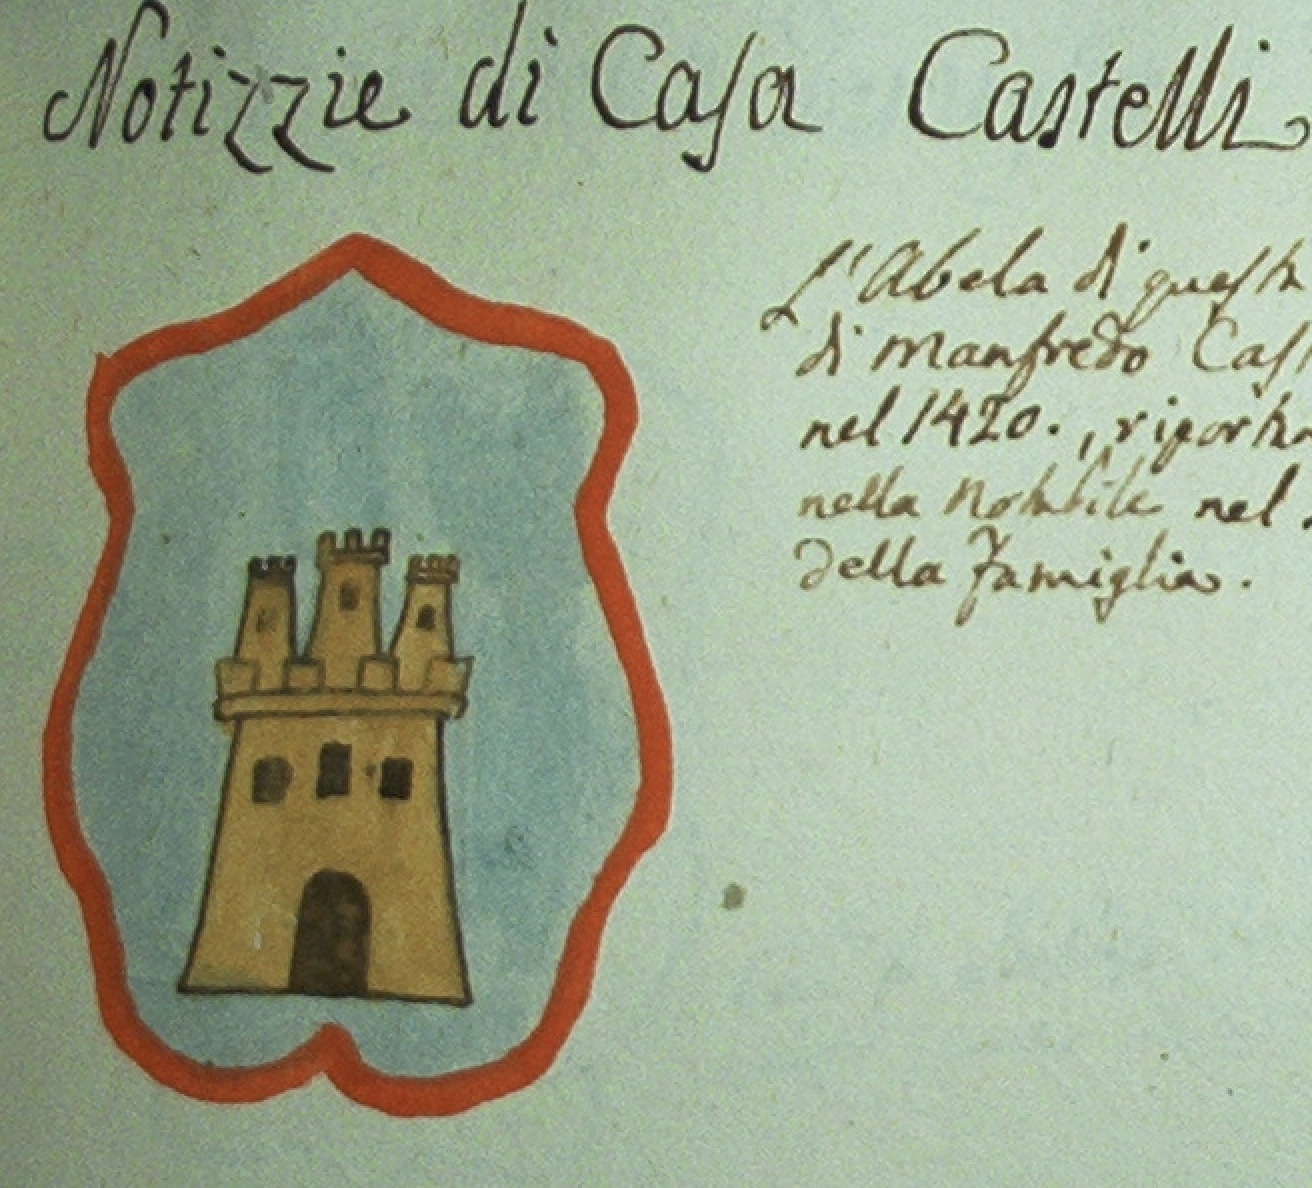 Notizzie di Casa Castelli
L'Abela di questa
di Manfredo Cast
nel 1420., riporta
nella Notabile nel
della Famiglia.